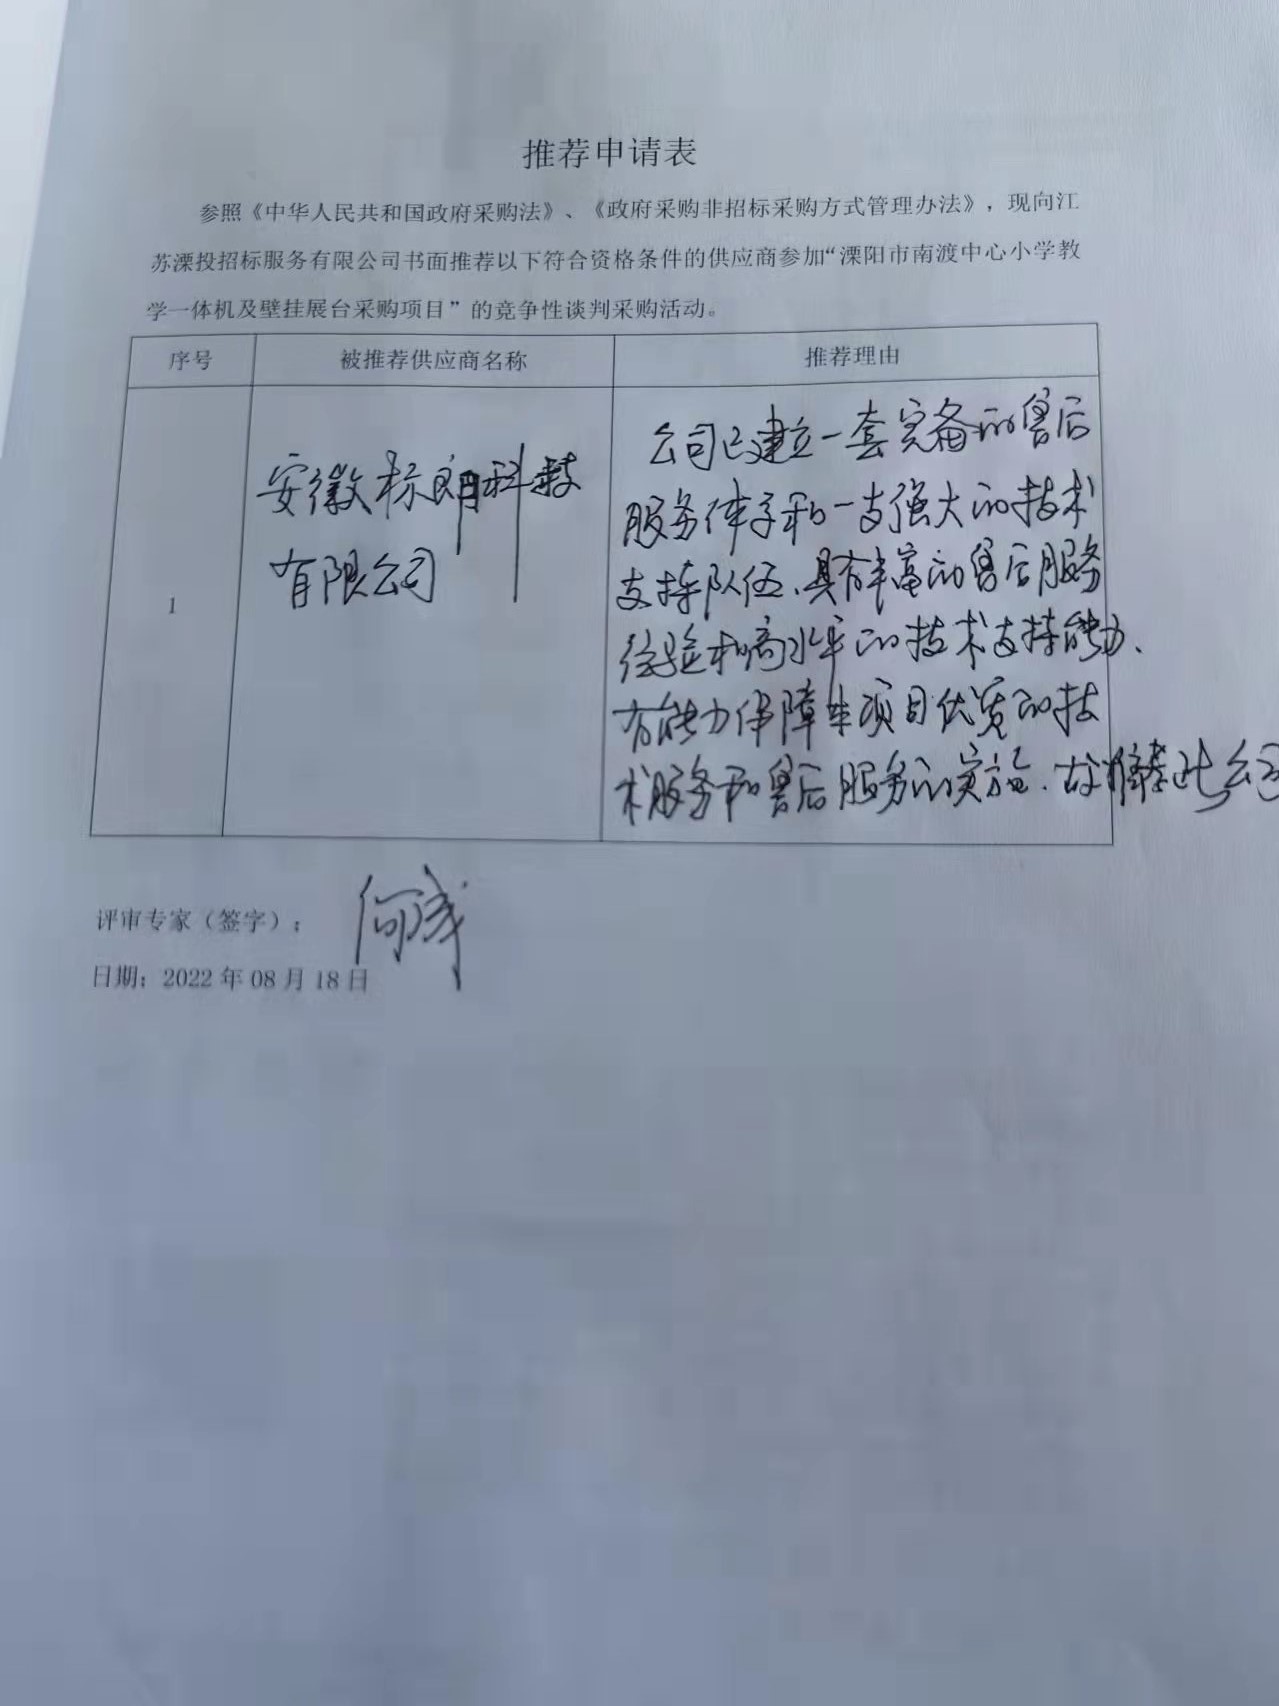 推荐申请表
参照《中华人民共和国政府采购法》、《政府采购非招标采购方式管理办法》，现向江
苏溧投招标服务有限公司书面推荐以下符合资格条件的供应商参加“溧阳市南渡中心小学教
学一体机及壁挂展台采购项目”的竞争性谈判采购活动。
序号 被推荐供应商名称 推荐理由
1
安徽标朗科技
有限公司
公司已建立一套完备的售后
服务体系和一支强大的技术
支持队伍、具有丰富的售后服务
经验和高水平的技术支持能力、
有能力保障本项目优质的技
术服务和售后服务的实施.故推荐此公司
评审专家（签字）：
日期：2022年08月18日